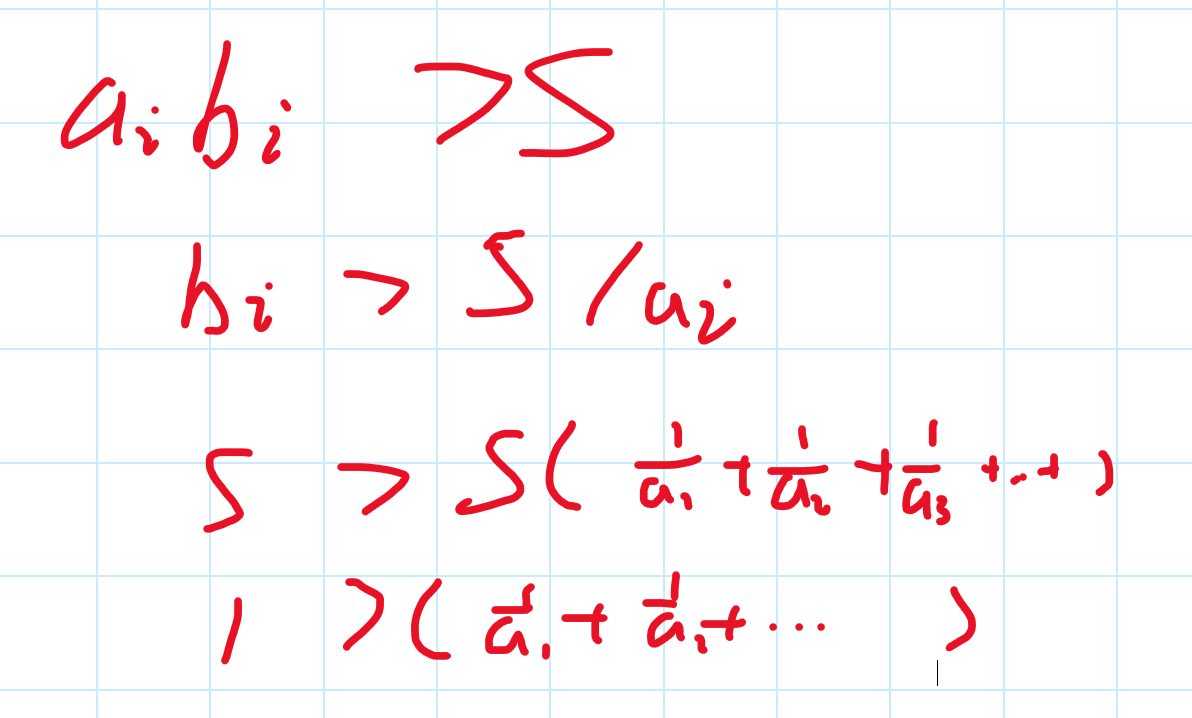 aᵢbᵢ > S
bᵢ > S / aᵢ
S > S ( 1/a₁ + 1/a₂ + 1/a₃ + ... + )
1 > ( 1/a₁ + 1/a₁ + ... )